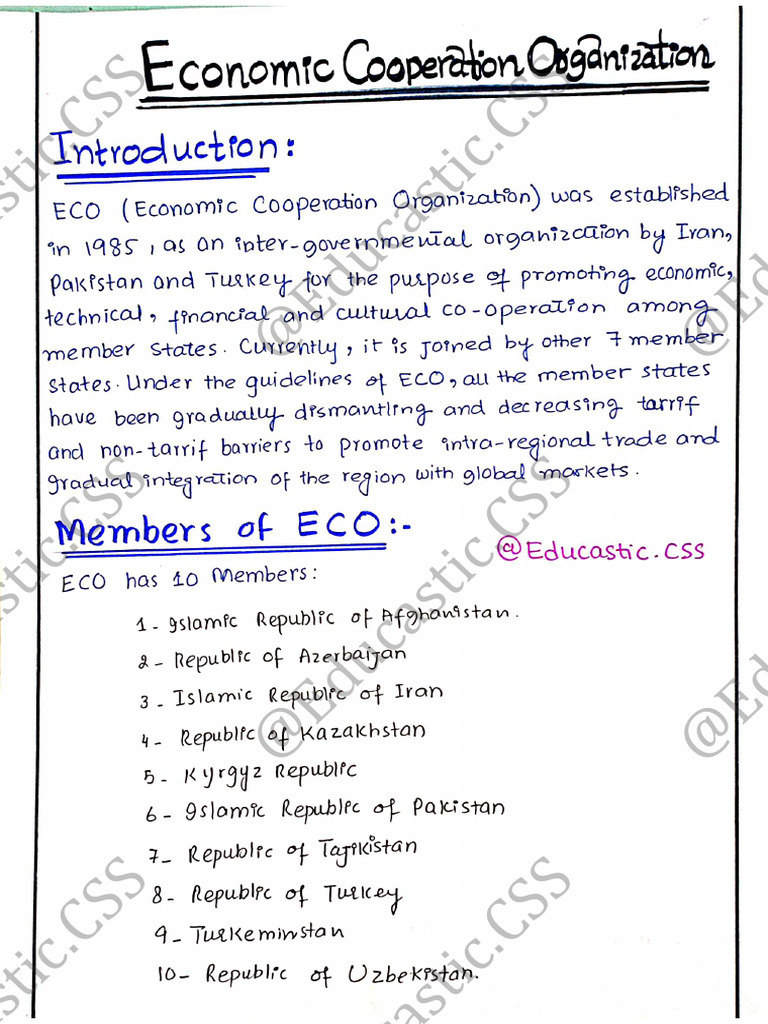 Economic Cooperation Organization
Introduction:
ECO (Economic Cooperation Organization) was established
in 1985, as an inter-governmental organization by Iran,
Pakistan and Turkey for the purpose of promoting economic,
technical, financial and cultural co-operation among
member states. Currently, it is joined by other 7 member
states. Under the guidelines of ECO, all the member states
have been gradually dismantling and decreasing tarrif
and non-tarrif barriers to promote intra-regional trade and
gradual integration of the region with global markets.
Members of ECO:-
@Educastic.CSS
ECO has 10 Members:
1- Islamic Republic of Afghanistan.
2- Republic of Azerbaijan
3- Islamic Republic of Iran
4- Republic of Kazakhstan
5- Kyrgyz Republic
6- Islamic Republic of Pakistan
7- Republic of Tajikistan
8- Republic of Turkey
9- Turkeminstan
10- Republic of Uzbekistan.
@Educastic.CSS
@Educastic.CSS